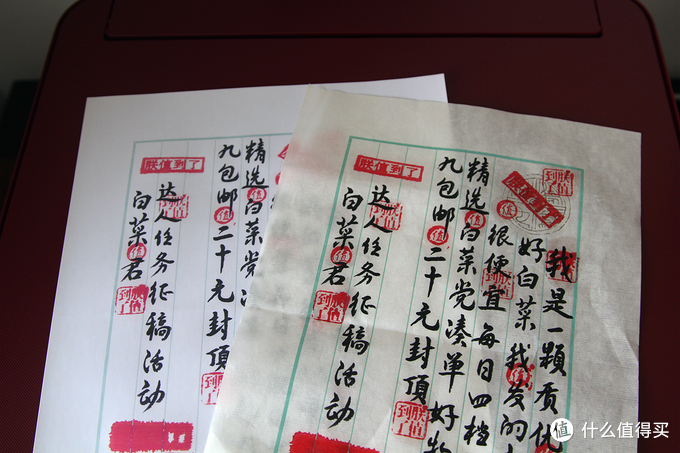 我是一颗质优
好白菜我发的
很便宜每日四档
精选白菜党凑单好
九包邮二十元封顶
达人任务征稿活动
白菜君
朕值到了
朕值到了
朕值到了
精选白菜党
九包邮二十元封顶
达人任务征稿活动
白菜君
朕值到了
值 什么值得买